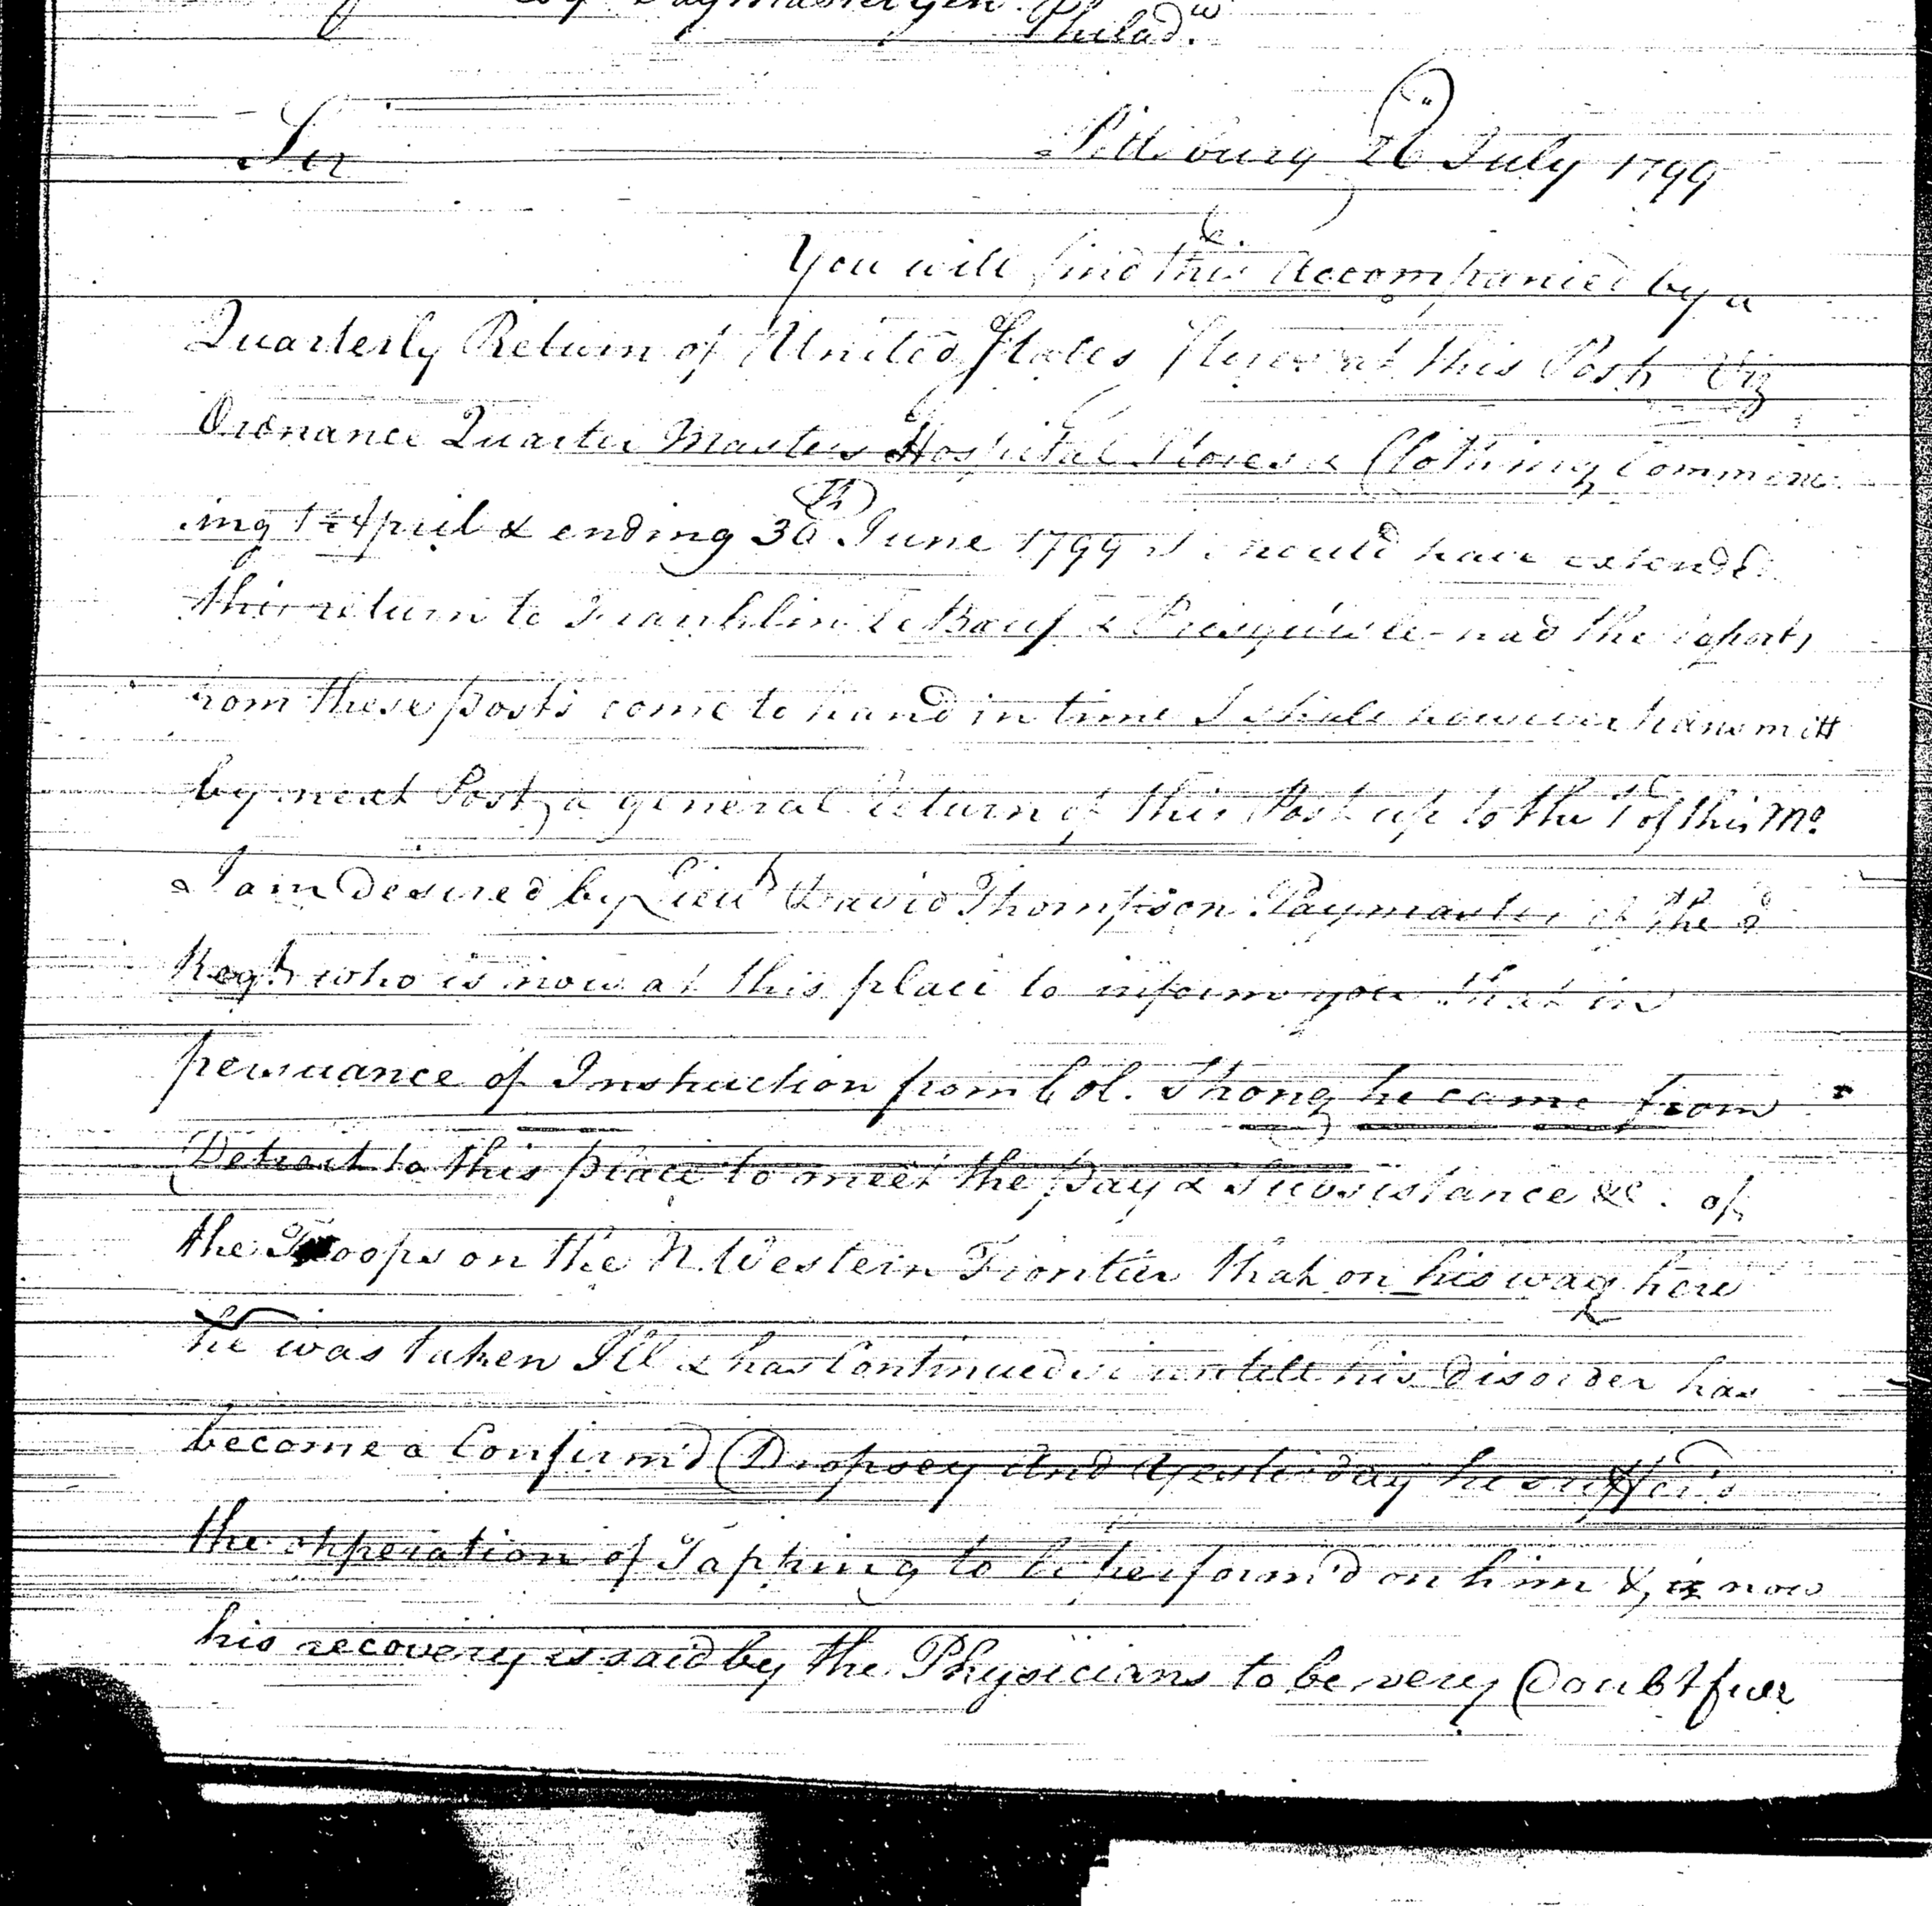 Esqr Paymaster Genl.
Philada.
Sir
Pittsburg 26 July 1799
You will find this Accompanied by a
Quarterly Return of United States Stores at this Post Viz
Ordnance Quarter Masters Hospital Stores & Clothing Commenc
ing 1st April & ending 30th June 1799 I would have extended
this return to Franklin Le Bœuf & Presqu'isle had the reports
from these posts come to hand in time I shall however transmitt
by next Post a general Return of this Post up to the 1st of this Mo.
I am desired by Lieut David Thompson Paymaster of the
Regt. who is now at this place to inform you that in
persuance of Instruction from Col. Strong he came from
Detroit to this place to meet the pay & Subsistance &c. of
the Troops on the N. Western Frontier that on his way here
he was taken Ill & has Continued so untill his disorder has
become a Confirm'd Dropsey And Yesterday he suffer'd
the opperation of Tapping to be perform'd on him & is now
his recovery is said by the Physicians to be very Doubtfull